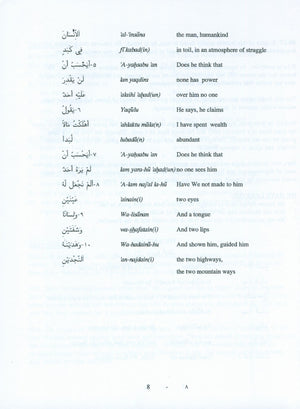 ٱلْإِنْسَانَ 'al-'insāna the man, humankind
فِي كَبَدٍ fī kabad(in) in toil, in an atmosphere of struggle
٥- أَيَحْسَبُ أَنْ 'A-yaḥsabu 'an Does he think that
لَنْ يَقْدِرَ lan yaqdira none has power
عَلَيْهِ أَحَدٌ 'alaihi 'aḥad(un) over him no one
٦- يَقُولُ Yaqūlu He says, he claims
أَهْلَكْتُ مَالًا 'ahlaktu māla(n) I have spent wealth
لُبَدًا lubadā(n) abundant
٧- أَيَحْسَبُ أَنْ 'A-yaḥsabu 'an Does he think that
لَمْ يَرَهُ أَحَدٌ lam yara-hū 'aḥad(un) no one sees him
٨- أَلَمْ نَجْعَلْ لَهُ 'A-lam naj'al la-hū Have We not made to him
عَيْنَيْنِ 'ainain(i) two eyes
٩- وَلِسَانًا Wa-lisānan And a tongue
وَشَفَتَيْنِ wa-shafatain(i) And two lips
١٠- وَهَدَيْنَاهُ Wa-hadainā-hu And shown him, guided him
ٱلنَّجْدَيْنِ 'an-najdain(i) the two highways,
the two mountain ways
8 - ٨